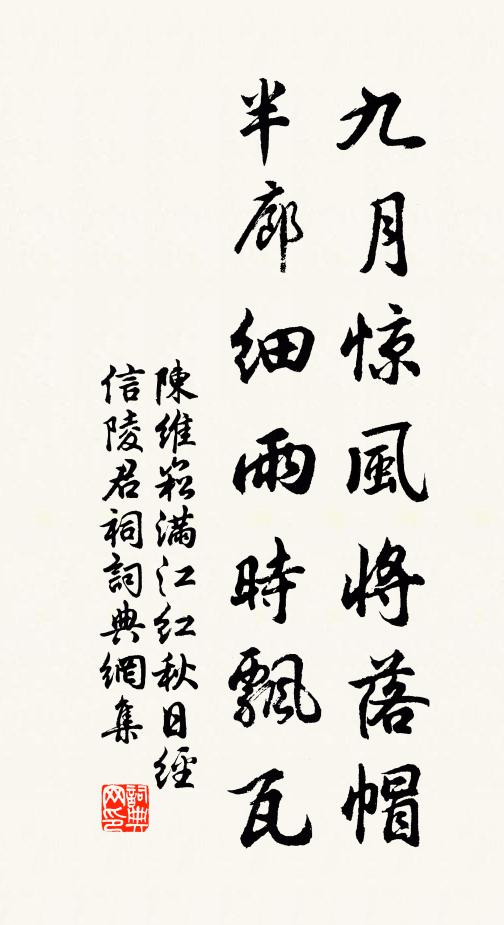 九月惊風将落帽
半廊细雨時飄瓦
陳維崧满江红秋日經
信陵君祠詞典網集
詞典